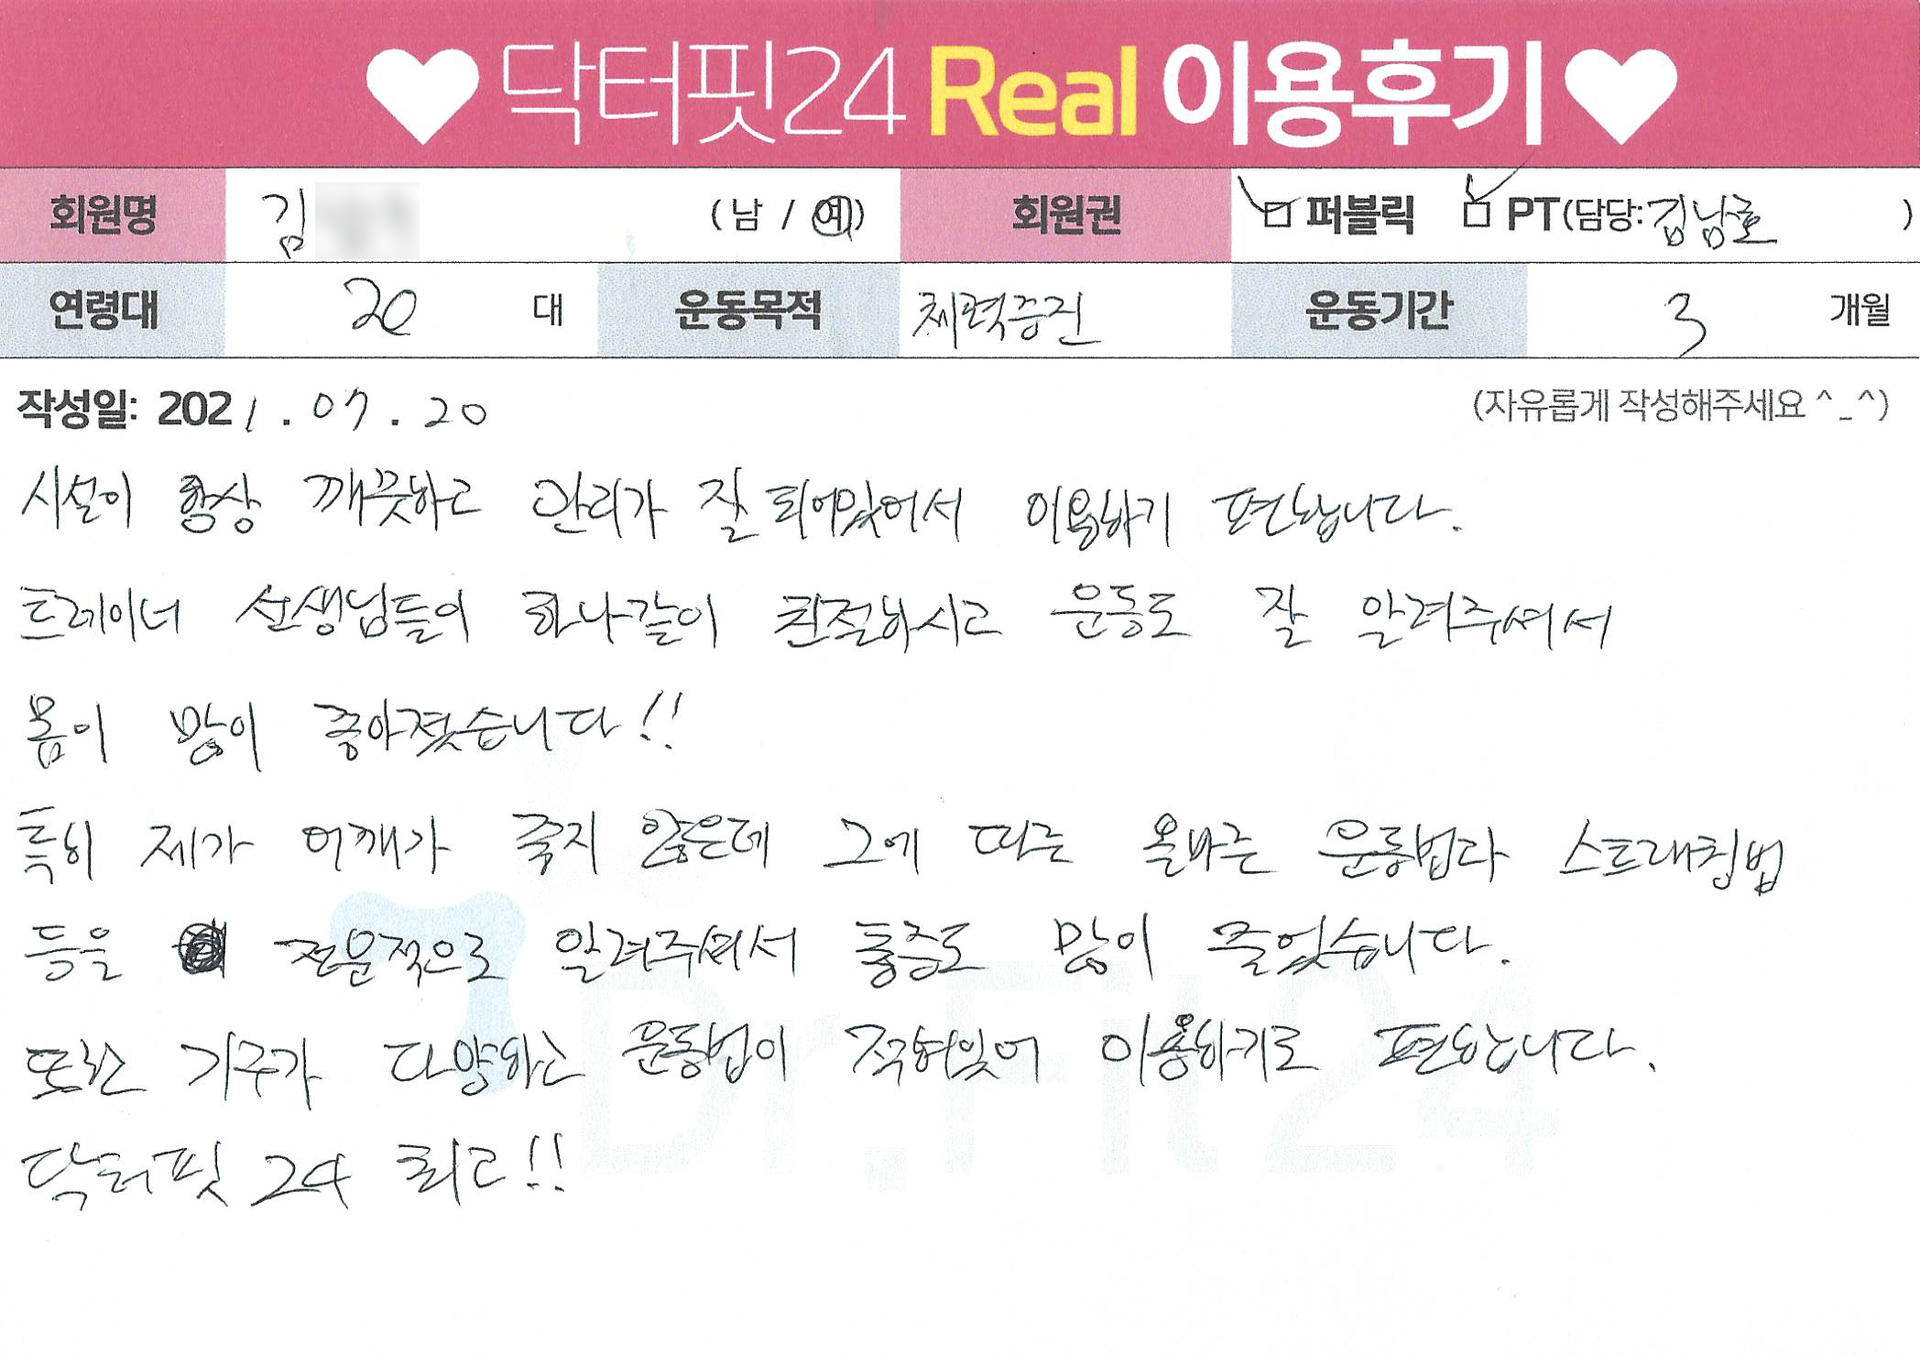 ♥닥터핏24 Real 이용후기♥
회원명 김 (남 / 여) 회원권 ☑ 퍼블릭 ☑ PT(담당: 김남호 )
연령대 20 대 운동목적 체력증진 운동기간 3 개월
작성일: 2021.07.20 (자유롭게 작성해주세요 ^_^)
시설이 항상 깨끗하고 관리가 잘 되어있어서 이용하기 편합니다.
트레이너 선생님들이 하나같이 친절하시고 운동도 잘 알려주셔서
몸이 많이 좋아졌습니다!!
특히 제가 어깨가 좋지 않은데 그에 따른 올바른 운동법과 스트레칭법
등을 전문적으로 알려주셔서 통증도 많이 줄었습니다.
또한 기구가 다양하고 운동법이 적혀있어 이용하기도 편합니다.
닥터핏 24 최고!!
Dr.Fit24